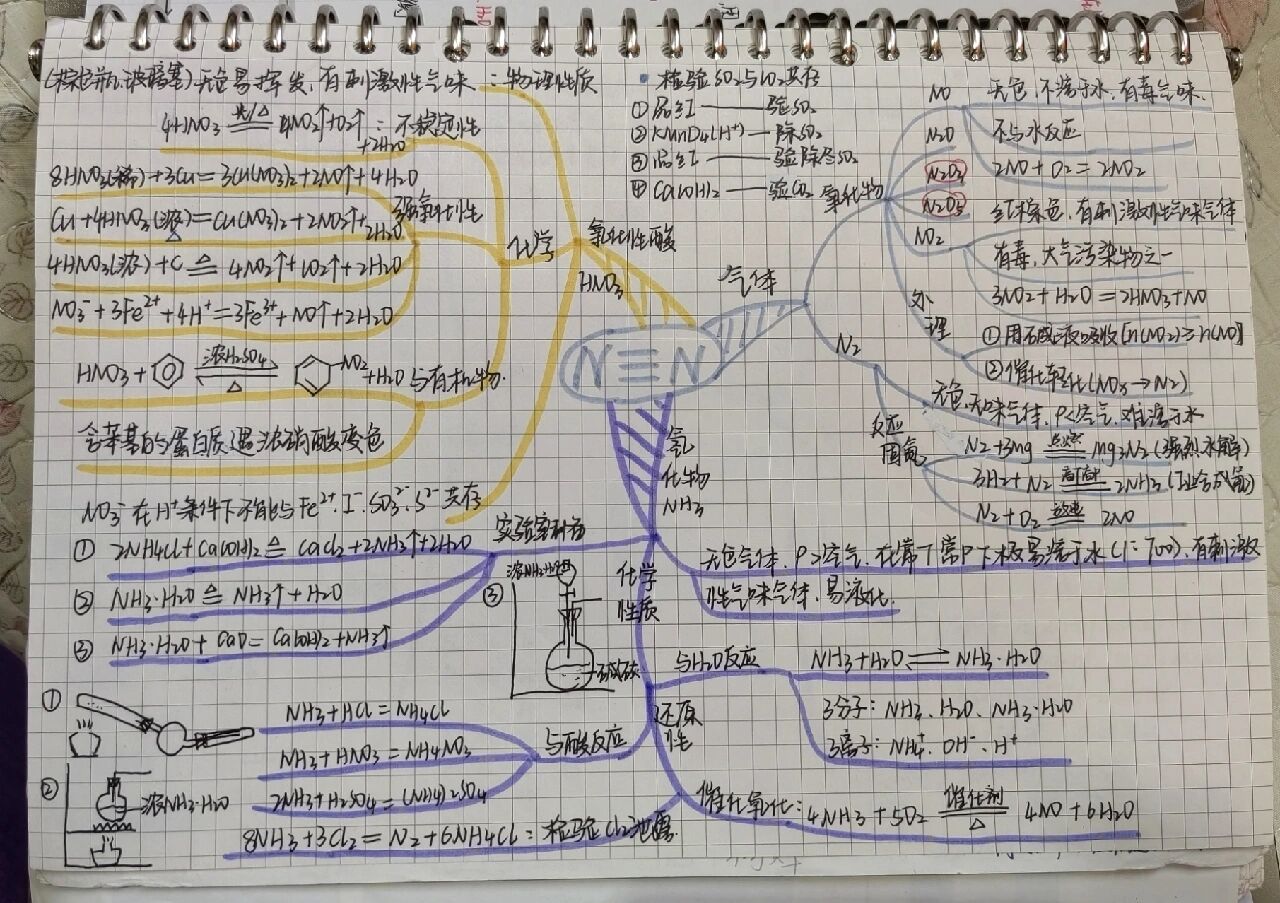 (棕色瓶,玻璃塞)无色易挥发,有刺激性气味:物理性质
4HNO₃ 光/△ 4NO₂↑+O₂↑+2H₂O:不稳定性
8HNO₃(稀)+3Cu=3Cu(NO₃)₂+2NO↑+4H₂O
Cu+4HNO₃(浓)=Cu(NO₃)₂+2NO₂↑+2H₂O
强氧化性
4HNO₃(浓)+C ≜ 4NO₂↑+CO₂↑+2H₂O
NO₃⁻+3Fe²⁺+4H⁺=3Fe³⁺+NO↑+2H₂O
HNO₃+ 浓H₂SO₄ △ NO₂ +H₂O 与有机物.
含苯基的蛋白质遇浓硝酸变色
NO₃⁻在H⁺条件下不能与Fe²⁺.I⁻.SO₃²⁻.S²⁻共存
化学
氧化性酸
HNO₃
• 检验SO₂与CO₂共存
①品红——验SO₂
②KMnO₄(H⁺)—除SO₂
③品红——验除尽SO₂
④Ca(OH)₂——验CO₂
氧化物
气体
N≡N
NO 无色,不溶于水,有毒气味.
N₂O 不与水反应
N₂O₃ 2NO+O₂=2NO₂
N₂O₅ 红棕色,有刺激性气味气体
NO₂ 有毒,大气污染物之一
3NO₂+H₂O=2HNO₃+NO
处理
①用碱液吸收[n(NO₂)≥n(NO)]
②催化转化(NOx→N₂)
N₂
无色,无味气体,ρ<空气,难溶于水
反应
固氮
N₂+3Mg 点燃 Mg₃N₂(强烈水解)
3H₂+N₂ 高温高压 2NH₃(工业合成氨)
N₂+O₂ 放电 2NO
氢化物
NH₃
无色气体,ρ>空气,在常T常P下极易溶于水(1:700),有刺激
性气味气体,易液化.
实验室制法
① 2NH₄Cl+Ca(OH)₂ ≜ CaCl₂+2NH₃↑+2H₂O
② NH₃·H₂O ≜ NH₃↑+H₂O
③ NH₃·H₂O+CaO=Ca(OH)₂+NH₃↑
③
浓NH₃·H₂O
化学性质
与H₂O反应
NH₃+H₂O⇌NH₃·H₂O
3分子:NH₃.H₂O.NH₃·H₂O
3离子:NH₄⁺.OH⁻.H⁺
①
②
浓NH₃·H₂O
与酸反应
NH₃+HCl=NH₄Cl
NH₃+HNO₃=NH₄NO₃
2NH₃+H₂SO₄=(NH₄)₂SO₄
还原性
8NH₃+3Cl₂=N₂+6NH₄Cl:检验Cl₂泄露
催化氧化:4NH₃+5O₂ 催化剂 △ 4NO+6H₂O